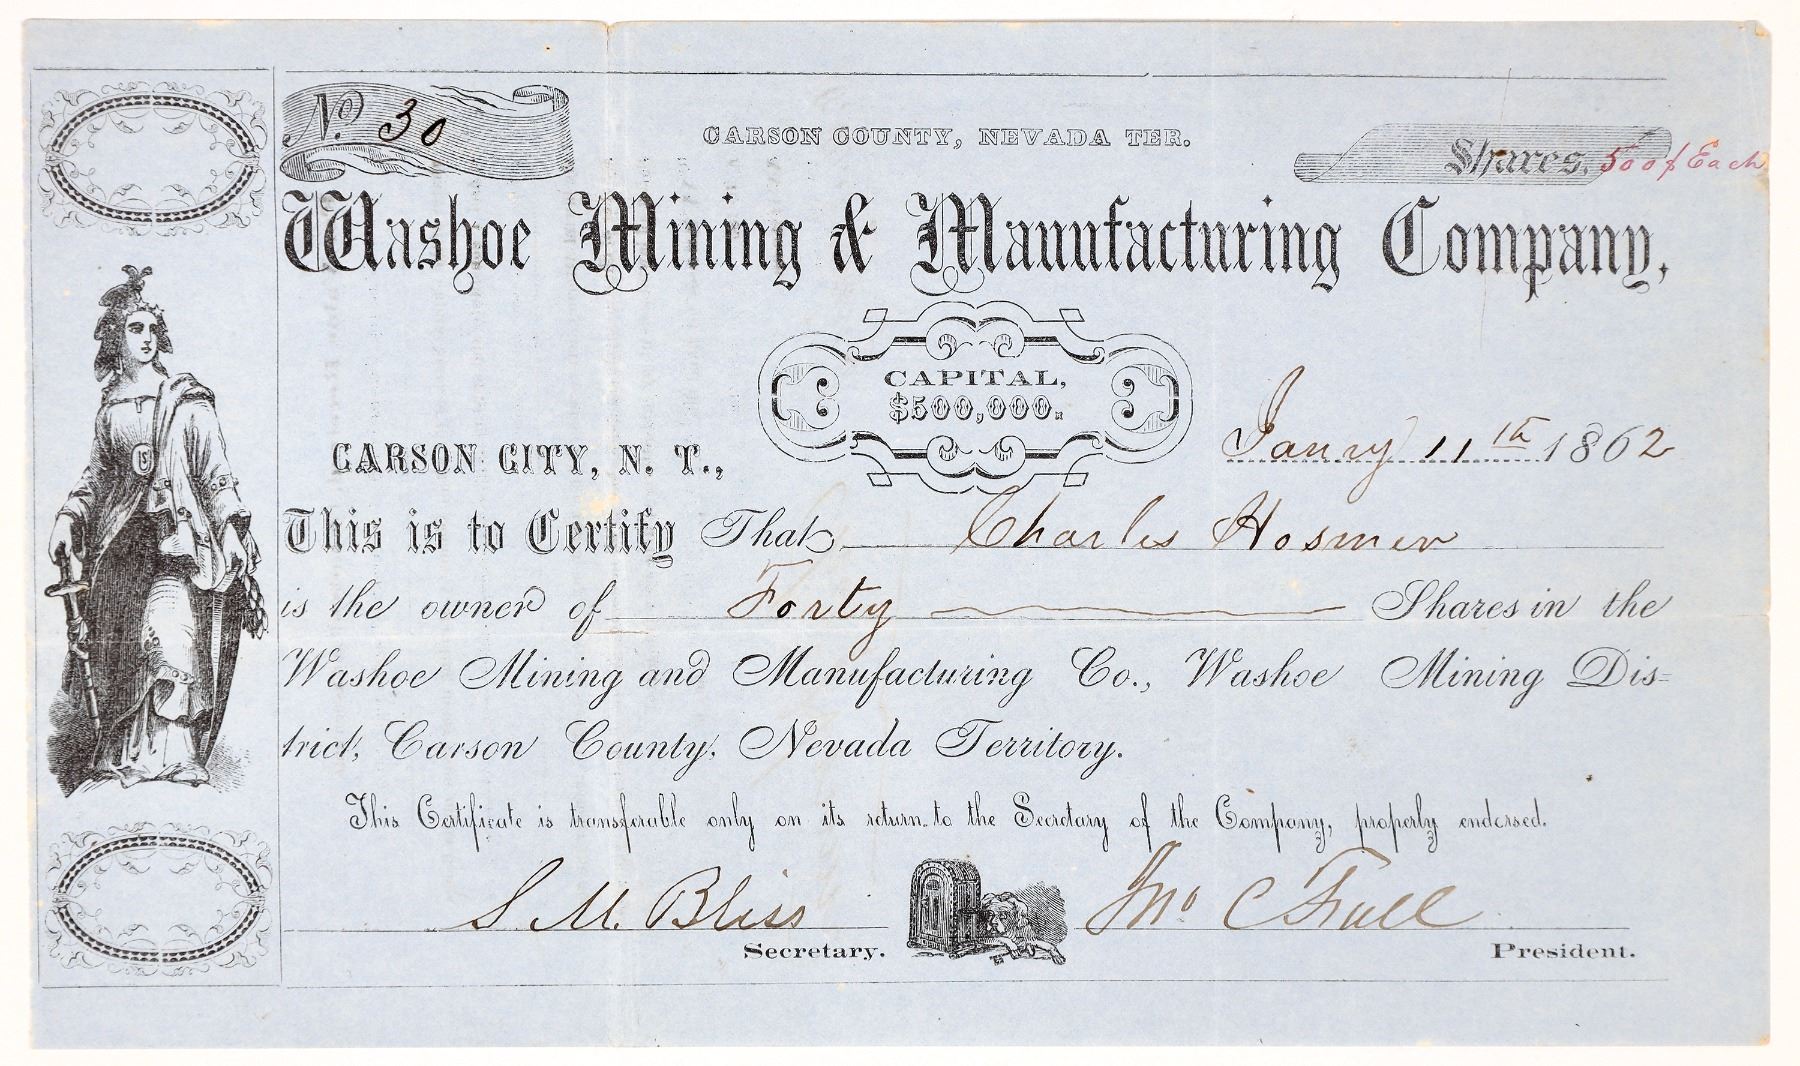 No. 30
CARSON COUNTY, NEVADA TER.
Shares. 500$ Each
Washoe Mining & Manufacturing Company,
CAPITAL,
$500,000.
CARSON CITY, N. T.,
Janry 11th 1862
This is to Certify That Charles Hosmer
is the owner of Forty Shares in the
Washoe Mining and Manufacturing Co., Washoe Mining Dis=
trict, Carson County, Nevada Territory.
This Certificate is transferable only on its return to the Secretary of the Company, properly endorsed.
US
S M. Bliss
Secretary.
Jno C
President.